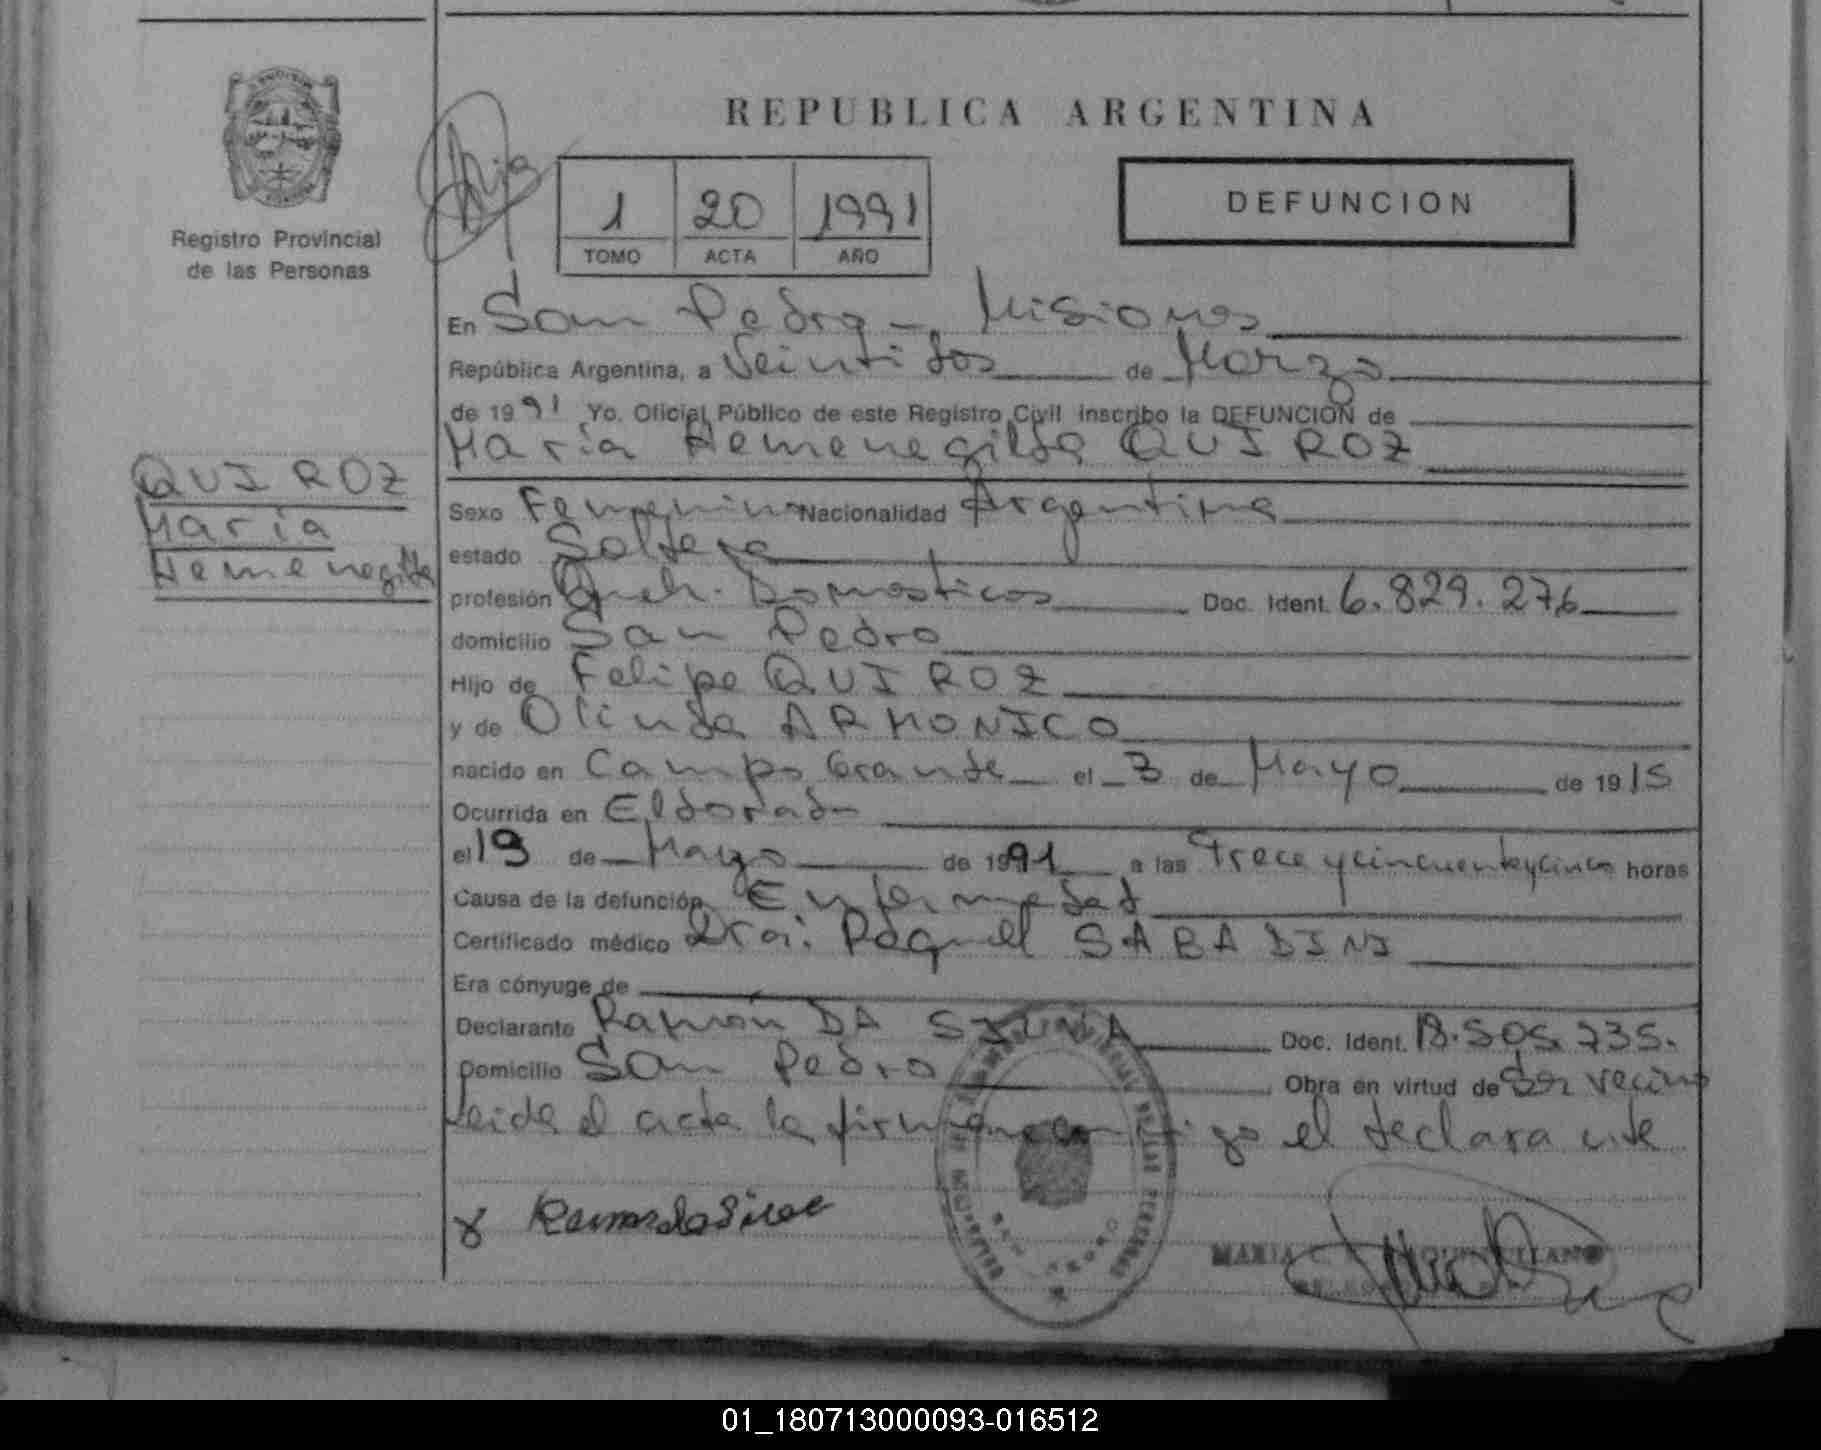 REPUBLICA ARGENTINA
Registro Provincial
de las Personas
1 20 1991
TOMO ACTA AÑO
DEFUNCION
En San Pedro -, Misiones
República Argentina, a Veintidos de Marzo
de 1991 Yo. Oficial Público de este Registro Civil inscribo la DEFUNCION de
María Hemenegilda QUIROZ
QUIROZ
María
Hemenegilda
Sexo Femenino Nacionalidad Argentina
estado Soltera
profesión Queh. Domesticos Doc. Ident. 6.829.276
domicilio San Pedro
Hijo de Felipe QUIROZ
y de Olinda ARMONICO
nacido en Campo Grande el 3 de Mayo de 1915
Ocurrida en Eldorado
el 19 de Mayo de 1991 a las Trece y cincuenta y cinco horas
Causa de la defunción Enfermedad
Certificado médico Dra. Raquel SABADINI
Era cónyuge de
Declarante Ramón DA SILVA Doc. Ident. 18.505.735.
Domicilio San Pedro Obra en virtud de Ser vecino
Leida el acta la firma conmigo el declarante
MARIA
01_180713000093-016512